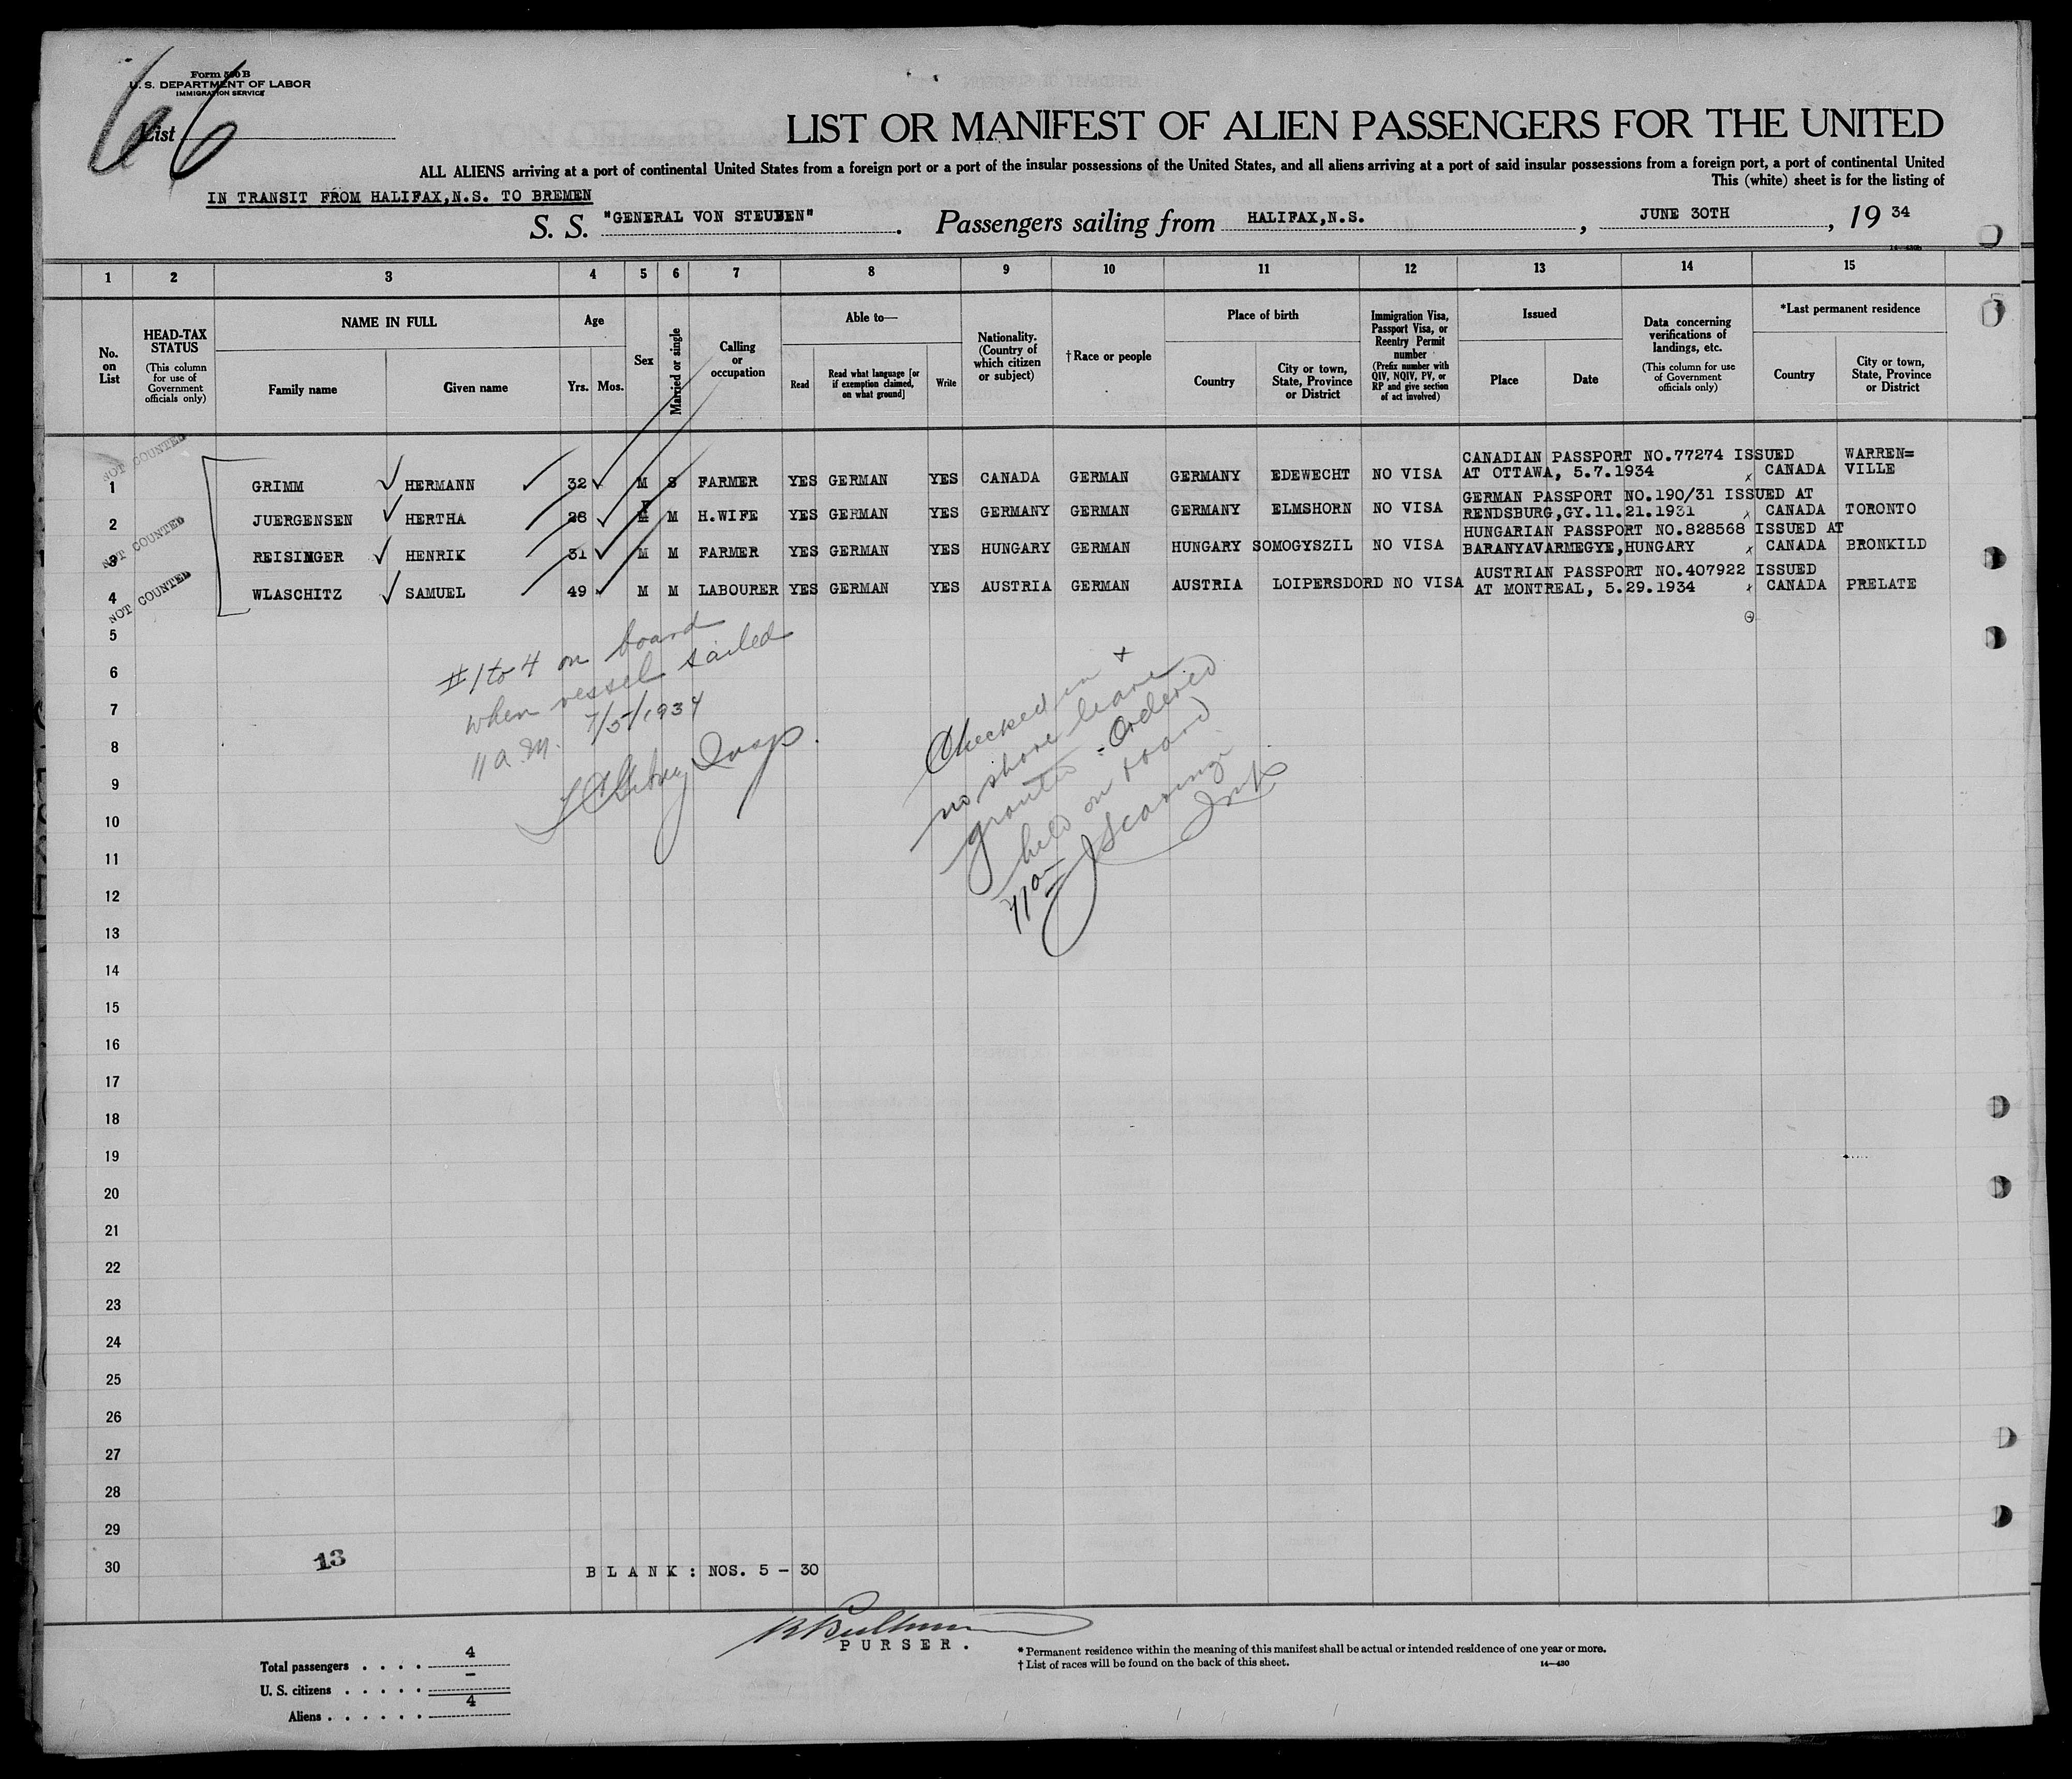 66
Form 500 B
U. S. DEPARTMENT OF LABOR
IMMIGRATION SERVICE
List
LIST OR MANIFEST OF ALIEN PASSENGERS FOR THE UNITED
ALL ALIENS arriving at a port of continental United States from a foreign port or a port of the insular possessions of the United States, and all aliens arriving at a port of said insular possessions from a foreign port, a port of continental United
This (white) sheet is for the listing of
IN TRANSIT FROM HALIFAX,N.S. TO BREMEN
S. S. "GENERAL VON STEUBEN". Passengers sailing from HALIFAX,N.S., JUNE 30TH, 19 34
1 2 3 4 5 6 7 8 9 10 11 12 13 14 15
No. on List
HEAD-TAX STATUS
(This column for use of Government officials only)
NAME IN FULL
Family name Given name
Age
Yrs. Mos.
Sex
Married or single
Calling or occupation
Able to—
Read Read what language [or if exemption claimed, on what ground] Write
Nationality. (Country of which citizen or subject)
†Race or people
Place of birth
Country City or town, State, Province or District
Immigration Visa, Passport Visa, or Reentry Permit number
(Prefix number with QIV, NQIV, PV, or RP and give section of act involved)
Issued
Place Date
Data concerning verifications of landings, etc.
(This column for use of Government officials only)
*Last permanent residence
Country City or town, State, Province or District
NOT COUNTED
1 GRIMM HERMANN 32 M S FARMER YES GERMAN YES CANADA GERMAN GERMANY EDEWECHT NO VISA CANADIAN PASSPORT NO.77274 ISSUED AT OTTAWA, 5.7.1934 x CANADA WARREN= VILLE
2 JUERGENSEN HERTHA 28 F M H.WIFE YES GERMAN YES GERMANY GERMAN GERMANY ELMSHORN NO VISA GERMAN PASSPORT NO.190/31 ISSUED AT RENDSBURG,GY.11.21.1931 x CANADA TORONTO
NOT COUNTED
3 REISINGER HENRIK 31 M M FARMER YES GERMAN YES HUNGARY GERMAN HUNGARY SOMOGYSZIL NO VISA HUNGARIAN PASSPORT NO.828568 ISSUED AT BARANYAVARMEGYE,HUNGARY x CANADA BRONKILD
NOT COUNTED
4 WLASCHITZ SAMUEL 49 M M LABOURER YES GERMAN YES AUSTRIA GERMAN AUSTRIA LOIPERSDORD NO VISA AUSTRIAN PASSPORT NO.407922 ISSUED AT MONTREAL, 5.29.1934 x CANADA PRELATE
#1 to 4 on board
when vessel sailed
11 a.m. 7/5/1934
Insp.
Checked in +
no shore leave
granted - Ordered
held on board
5
6
7
8
9
10
11
12
13
14
15
16
17
18
19
20
21
22
23
24
25
26
27
28
29
30
13
BLANK: NOS. 5 - 30
PURSER.
Total passengers . . . . 4
U. S. citizens . . . . . –
Aliens . . . . . . 4
*Permanent residence within the meaning of this manifest shall be actual or intended residence of one year or more.
†List of races will be found on the back of this sheet.
14—430